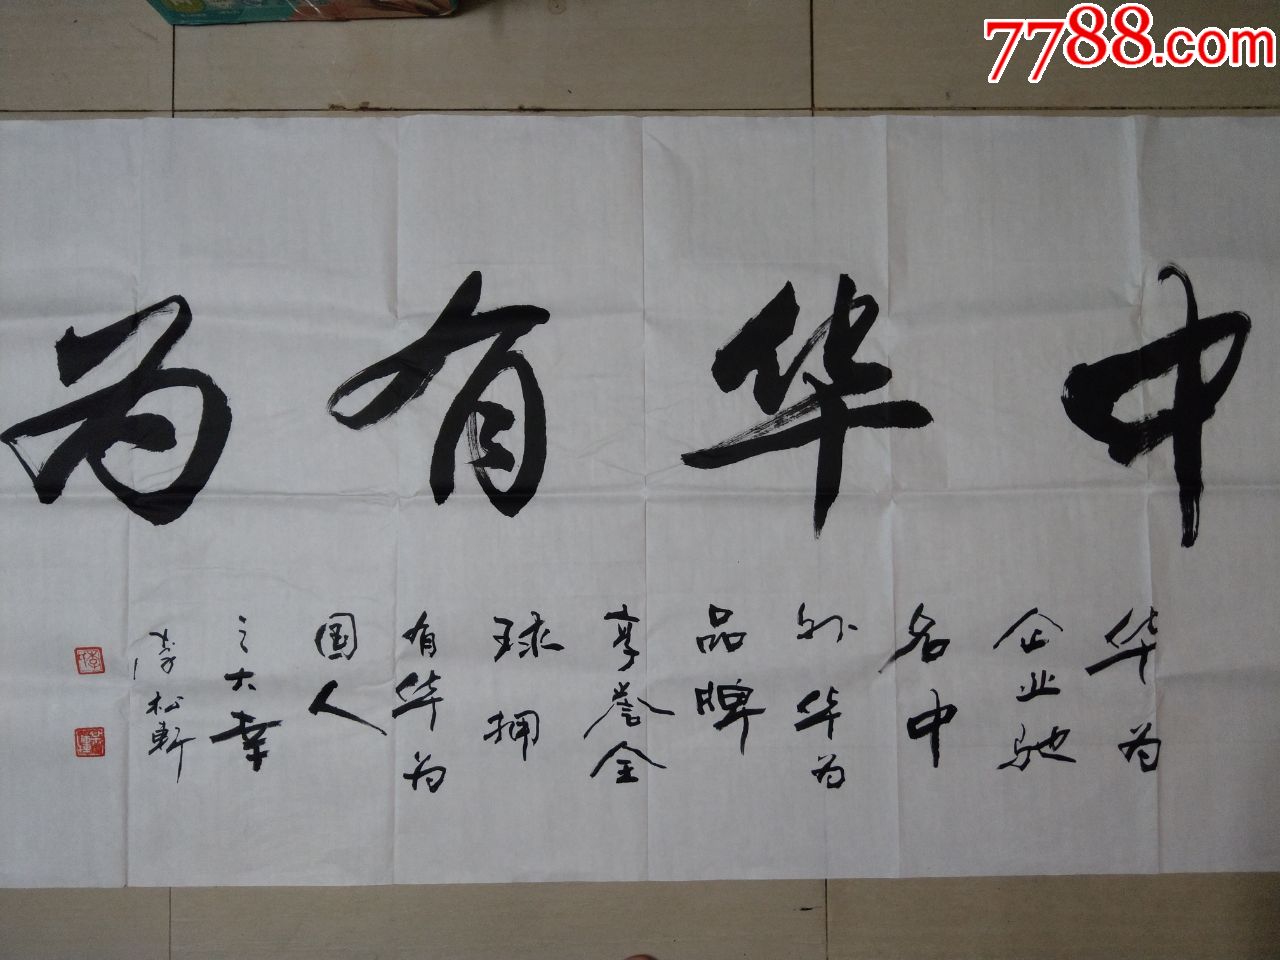 7788.com
中华有为
华为
企业驰
名中
外华为
品牌
享誉全
球拥
有华为
国人
之大幸
松轩